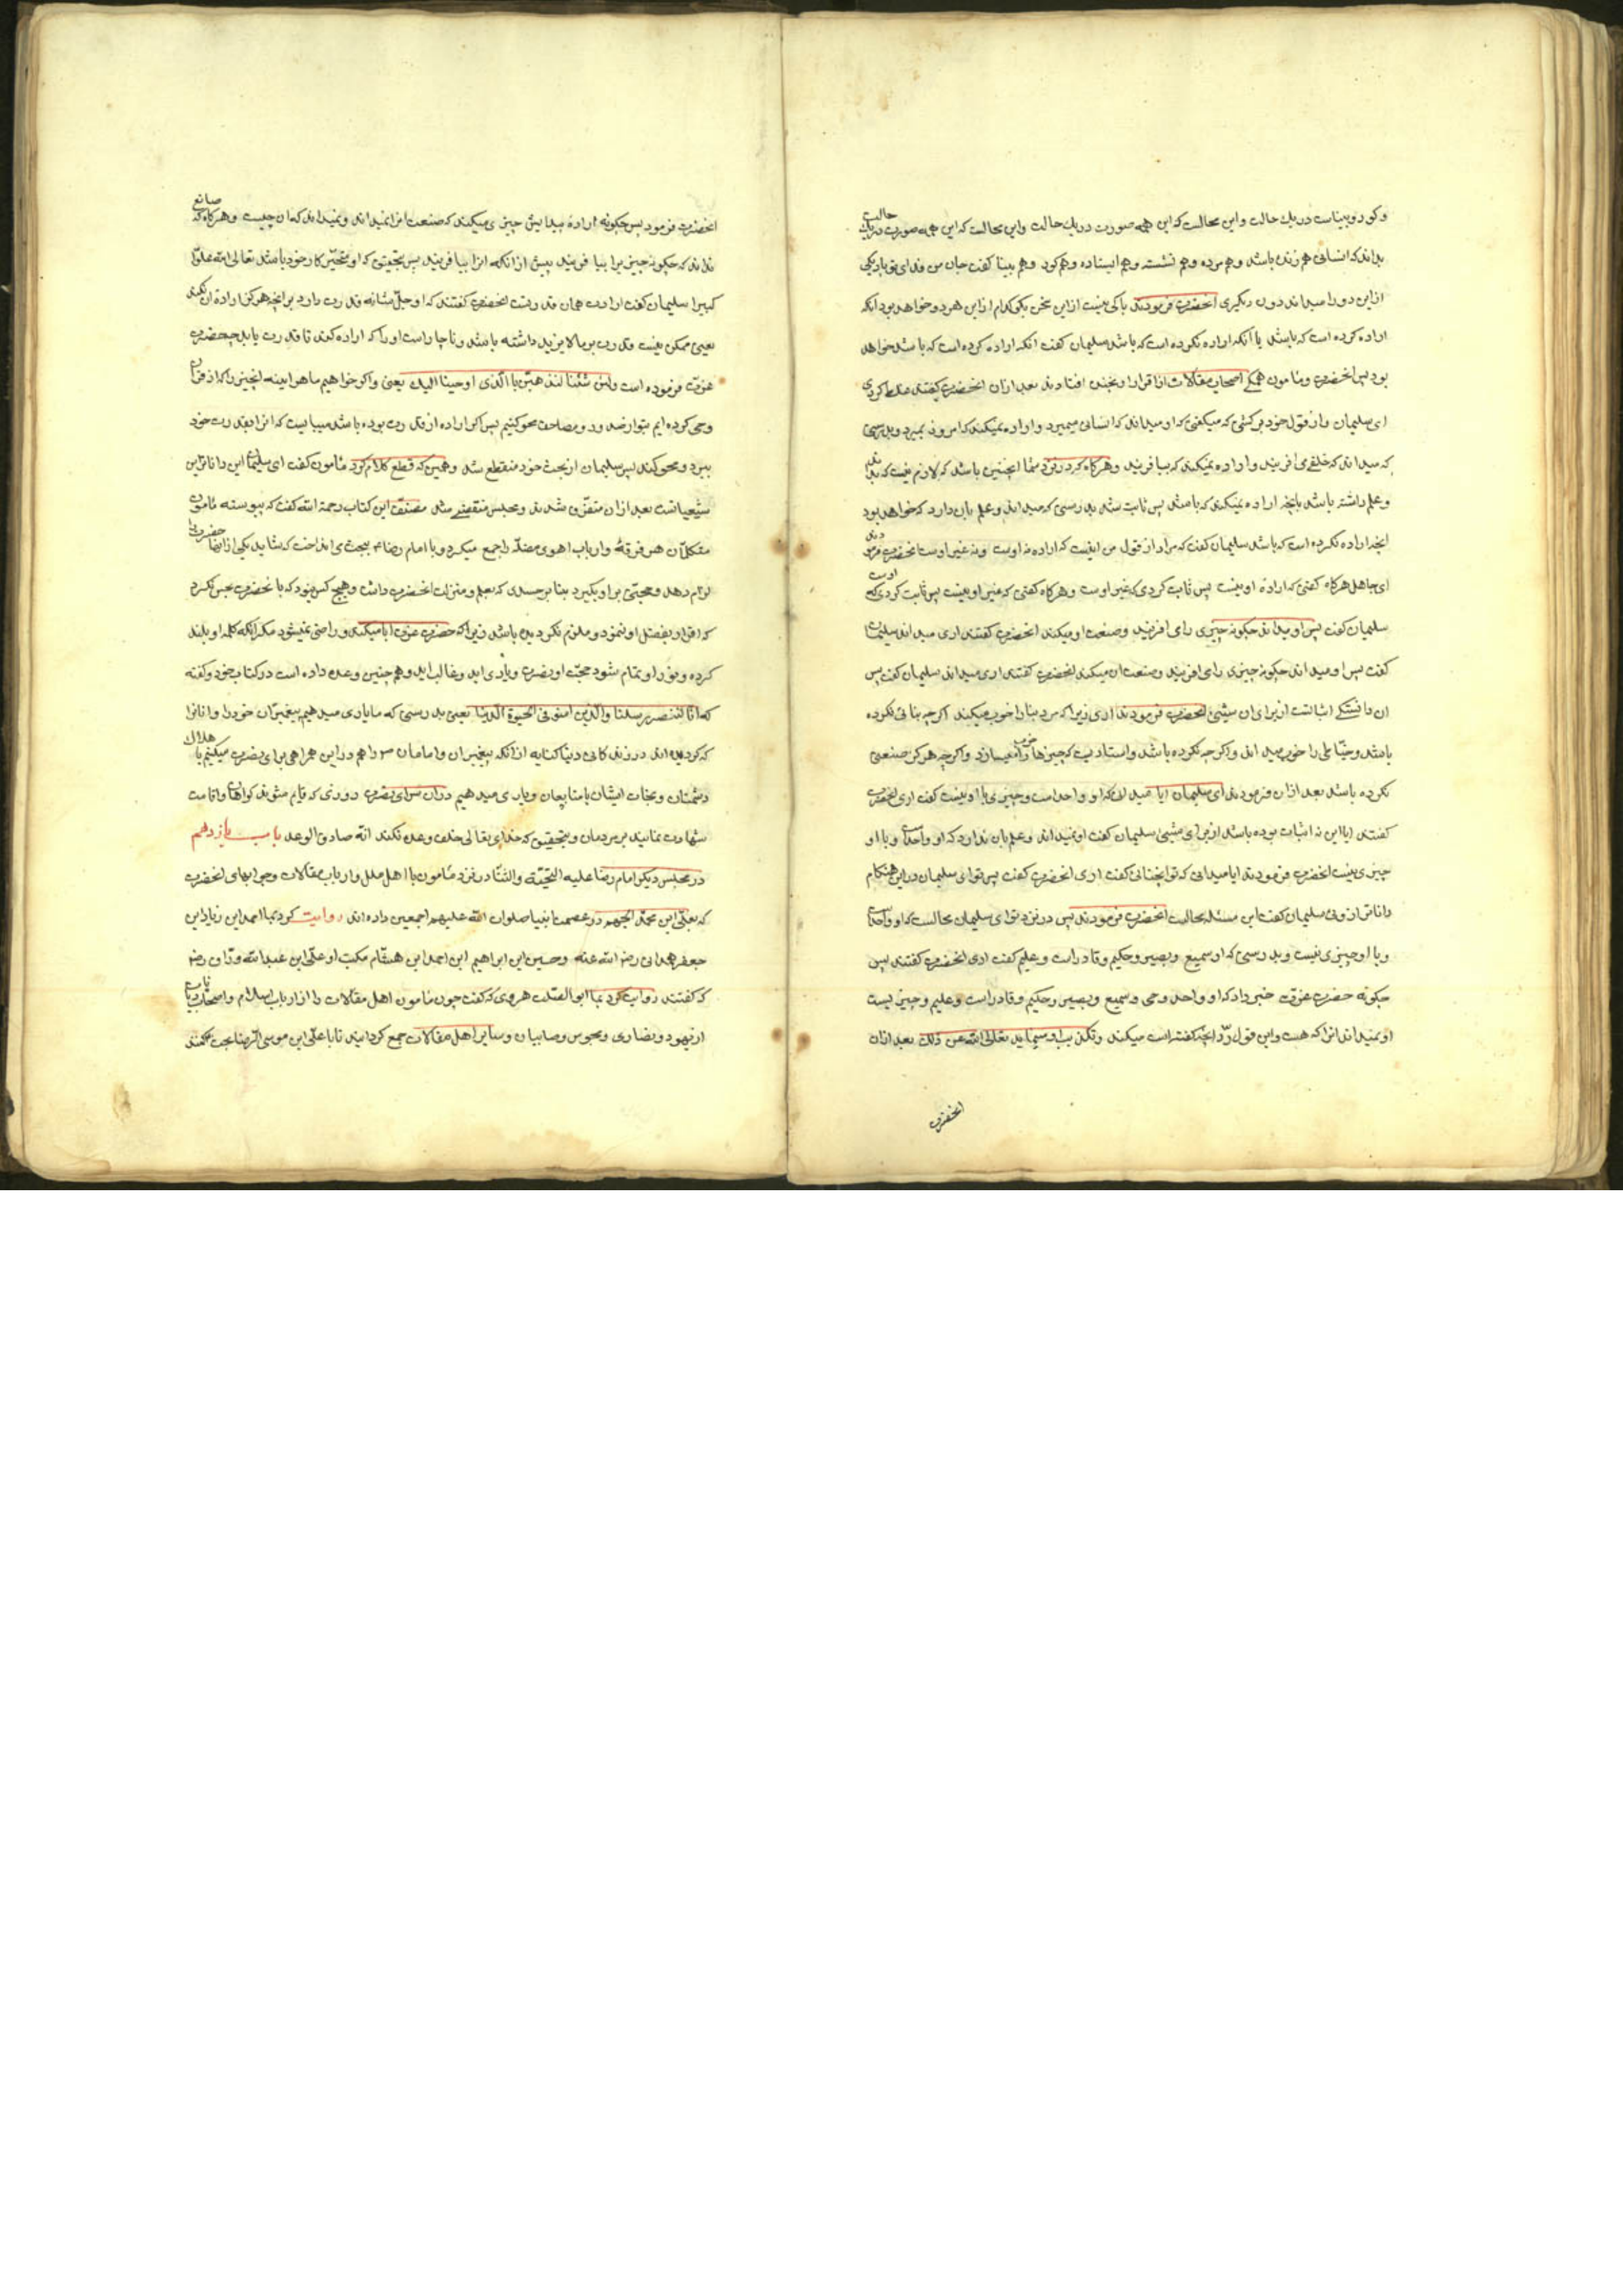 و کور و بیناست در یك حالت و این محالست که این همه صورت در یك حالت و این محالست که این همه صورت در یك حالت
بداند که انسانی هم زنده باشد و هم مرده و هم نشسته و هم ایستاده و هم کور و هم بینا کفت جان من فدای تو باد یکی
از این دو را میداند دون دیگری انحضرت فرمودند باکی نیست از این سخن بکو کدام از این هر دو خواهد بود انکه
اراده کرده است که باشد یا آنکه اراده نکرده است که باشد سلیمان کفت انکه اراده کرده است که باشد خواهد
بود پس انحضرت و مامون همکی اصحاب مقالات از اقرار او بخنده افتادند بعد ازان انحضرت کفتند غلط کردی
ای سلیمان و از قول خود برکشتی که میکفتی که او میداند که انسانی میمیرد و اراده نمیکند که امروز بمیرد و بدرستی
که میداند که خلقی می افریند و اراده نمیکند که بیافریند و هرکاه که در نزد شما اینچنین باشد که لازم نیست که بداند
و علم داشته باشد بانچه اراده نمیکند که باشد پس ثابت شد بدرستی که میداند و علم بان دارد که خواهد بود
انچه اراده نکرده است که باشد سلیمان کفت که مراد از قول من اینست که اراده نه اوست و نه غیر اوست انحضرت فرمودند
ای جاهل هرکاه کفتی که اراده او نیست پس ثابت کردی که غیر اوست و هرکاه کفتی که غیر او نیست پس ثابت کردی که اوست
سلیمان کفت پس او میداند چکونه چیزی را می افریند و صنعت او میکند انحضرت کفتند اری میداند سلیمان
کفت پس او میداند چکونه چیزی را می افریند و صنعت ان میکند انحضرت کفتند اری میداند سلیمان کفت پس
ان دانستکی اثباتست از برای ان شیئی انحضرت فرمودند اری زیرا که مرد بنا را خوب میکند اکرچه بنائی نکرده
باشد و خیاطی را خوب میداند و اکرچه نکرده باشد و استادیست که چیزها را خوب میسازد و اکرچه هرکز صنعتی
نکرده باشد بعد ازان فرمودند ای سلیمان ایا میداند که او واحد است و چیزی با او نیست کفت اری انحضرت
کفتند ایا این نه اثبات بوده باشد از برای شیئی سلیمان کفت او نمیداند و علم بان ندارد که او واحد است و با او
چیزی نیست انحضرت فرمودند ایا میدانی که تو اینچنانی کفت اری انحضرت کفت پس تو ای سلیمان در این هنکام
داناتر از وئی سلیمان کفت این مسئله محالست انحضرت فرمودند پس در نزد تو ای سلیمان محالست که او واحد است
و با او چیزی نیست و بدرستی که او سمیع و بصیر و حکیم و قادر است و علیم کفت اری انحضرت کفتند پس
چکونه حضرت عزت خبر داد که او واحد و حی و سمیع و بصیر و حکیم و قادر است و علیم و چیزیست
او نمیداند انرا که هست و این قول رد انچه کفته است میکند و تکذیب او مینماید تعالی الله عن ذلك بعد ازان
انحضرت
انحضرت فرمود پس چکونه اراده پیدایش چیزی میکند که صنعت انرا نمیداند و نمیداند که ان چیست و هرکاه که صانع
نداند که چکونه چیزی را بیافریند پیش از انکه انرا بیافریند پس بتحقیق که او متحیر کار خود باشد تعالی الله علوا
کبیرا سلیمان کفت ارادت همان قدرتست انحضرت کفتند که او جل شانه قدرت دارد بر انچه هرکز اراده ان نکند
یعنی ممکن نیست قدرت بر مالایزید داشته باشد و ناچار است او را که اراده کند تا قدرت یابد چه حضرت
عزت فرموده است ولئن شئنا لنذهبن با الذی اوحینا الیك یعنی و اکر خواهیم ما هر اینه انچیزی را که از قران
وحی کرده ایم بتو از صدور و مصاحف محو کنیم پس اکر اراده از قدرت بوده باشد میبایست که انرا بقدرت خود
ببرد و محو کند پس سلیمان از بحث خود منقطع شد و همین که قطع کلام کرد مامون کفت ای سلیمان این داناترین
شیعیانست بعد ازان متفرق شدند و مجلس منقضی شد مصنف این کتاب رحمة الله کفت که پیوسته مامون
متکلمان هر فرقه و ارباب اهوی مضله را جمع میکرد و با امام رضا ع ببحث می انداخت که شاید یکی از انها حضرت را
الزام دهد و حجتی بر او بکیرد بنا بر حسدی که بعلم و منزلت انحضرت داشت و هیچ کس نبود که با انحضرت بحث نکرد
که اقرار بفضل او ننمود و ملزم نکردیده باشد زیرا که حضرت عزت ابا میکند و راضی نمیشود مکر انکه کلمه او بلند
کرده و نور او تمام شود حجت او بنصرت و یاری اید و غالب اید و همچنین وعده داده است در کتاب خود و کفته
که انا لننصر رسلنا والذین امنو فی الحیوة الدنیا یعنی بدرستی که ما یاری میدهیم پیغمبران خود را و انانرا
که کرویده اند در زندکانی دنیا کنایه از انکه پیغمبران و امامان را هم در این همراهی برای نصرت میکنیم با هلاك
دشمنان و نجات ایشان با متابعان و یاری میدهیم در ان سرای بنصرت دوروزی که قایم شوند کواهان و اقامت
شهادت نمایند بر مردمان و بتحقیق که خدای تعالی خلف وعده نکند انه صادق الوعد باب یازدهم
در مجلس دیکر امام رضا علیه التحیة والثنا در نزد مامون با اهل ملل و ارباب مقالات و جوابهای انحضرت
که بعلی ابن محمد الجهم در عصمت انبیا صلوات الله علیهم اجمعین داده اند روایت کرد بما احمد ابن زیاد ابن
جعفر همدانی رضی الله عنه و حسین ابن ابراهیم ابن احمد ابن هشام مکتب او علی ابن عبدالله وراق رضه
که کفتند روایت کرد بما ابو الصلت هروی که کفت چون مامون اهل مقالات را از ارباب اسلام و اصحاب دیانات
از یهود و نصاری و مجوس و صابیان و سایر اهل مقالات جمع کردانید تا با علی ابن موسی الرضا بحث کنند